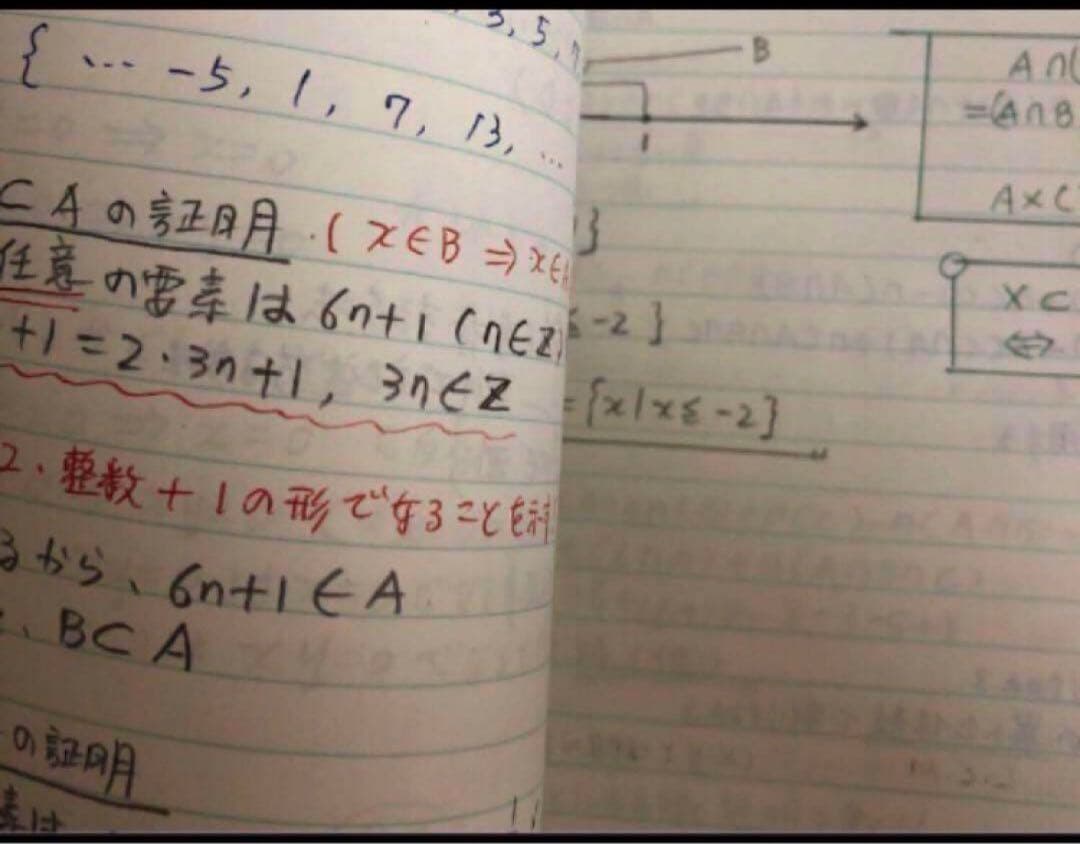 3, 5, 7
{ … -5, 1, 7, 13, …
⊂ A の証明 . ( x∈B ⇒ x∈A
任意の要素は 6n+1 (n∈Z)
+1 = 2・3n+1, 3n∈Z
2・整数+1の形でなることを示
るから、6n+1 ∈ A
、B⊂A
の証明
素は
B
1
}
≦ -2 }
= {x | x ≦ -2}
A∩(
=(A∩B
A×C
X⊂
⇔